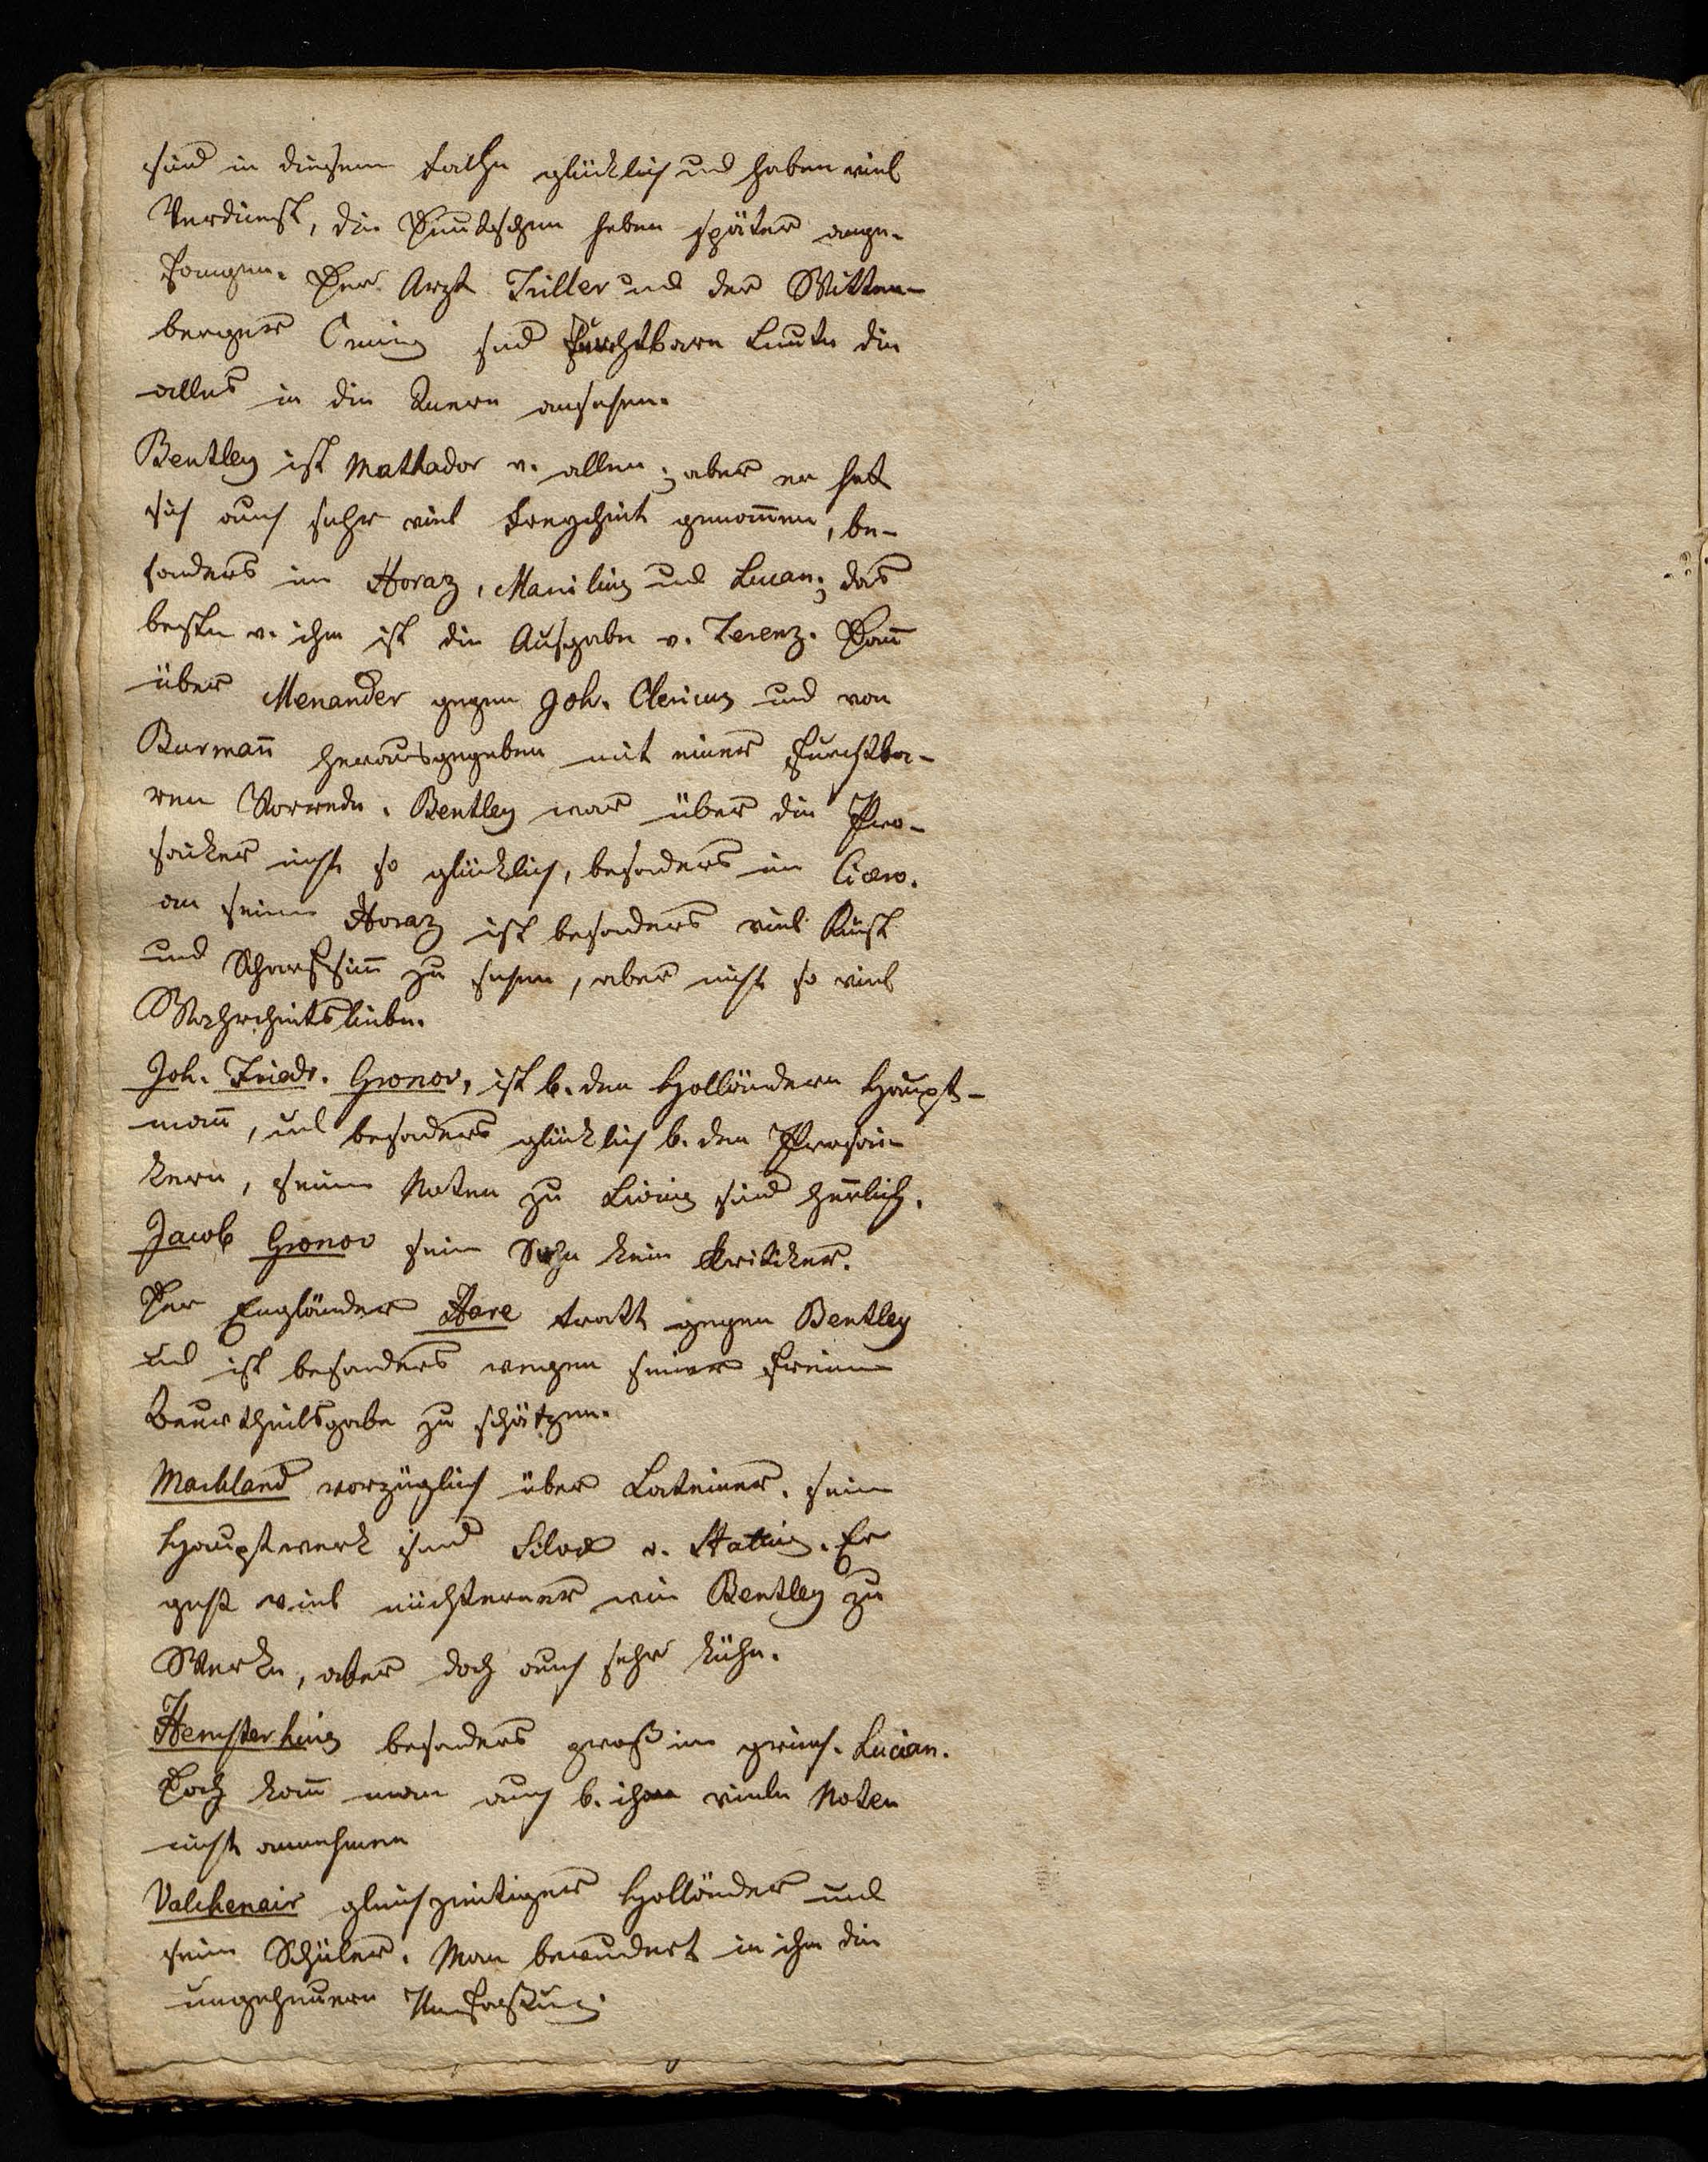 sind in diesem Fache glücklich und haben viel
Verdienst, die Deutschen haben später ange-
fangen. Der Arzt Triller und der Witten-
berger sind furchtbare Leute die
alles in die Quere ansehen.
Bentley ist Mattador v. allen; aber er hat
sich auch sehr viel Freyheit genom̅en, be-
sonders im Horaz, Manilius und Lucan; das
beste v. ihm ist die Ausgabe v. Terenz. Dan̅
über Menander gegen Joh. Clericus und von
Burman̅ herausgegeben mit einer furchtba-
ren Vorrede. Bentley war über die Pro-
saiker nicht so glücklich, besonders im Cicero.
an seinem Horaz ist besonders viel Kunst
und Scharfsin̅ zu sehen, aber nicht so viel
Wahrheitsliebe.
Joh. Friedr. Gronov, ist b. den Holländern Haupt-
man̅, und besonders glücklich b. den Prosai-
kern, seine Noten zu Livius sind herrlich.
Jacob Gronov sein Sohn kein Kritiker.
Der Engländer Hare tratt gegen Bentley
und ist besonders wegen seiner freien
Beurtheilsgabe zu schätzen.
Markland vorzüglich über Lateiner. sein
Hauptwerk sind Silvae v. Statius. Er
geht viel nüchterner wie Bentley zu
Werke, aber doch auch sehr kühn.
Hemsterhuis besonders groß im griech. Lucian.
Doch kan̅ man auch b. ihm viele Noten
nicht annehmen
Valckenair gleichzeitiger Holländer und
sein Schüler. Man bewundert in ihm die
ungeheuere Umfassung.